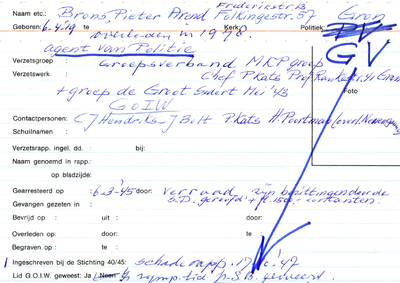 Frederikstr. 13
Naam etc.: Brons, Pieter Arend Folkingestr. 57 Gron
Geboren: 6-4-19 te Kerk Politiek:
overleden in 1978.
agent van Politie GV
Verzetsgroep : Groepsverband MKP groep
Verzetswerk : Chef PKats Prof Rankestr. 41 Gron
+ groep de Groot sedert Mei '43 Foto
GOIW
Contactpersonen: CJ Hendriks - J Bolt PKats H Poortman
Schuilnaam :
Verzetsrapp. ingel. dd. : bij:
Naam genoemd in rapp.:
op bladzijde:
Gearresteerd op : 6-3-'45 door: verraad zijn bezittingen
Gevangen gezeten in : S.D. geroofd + ft. contanten.
Bevrijd op : uit : door:
Overleden op : te : door:
Begraven op : te :
Ingeschreven bij de Stichting 40/45: schaderapp. '47
Lid G.O.I.W. geweest: Ja / Neen